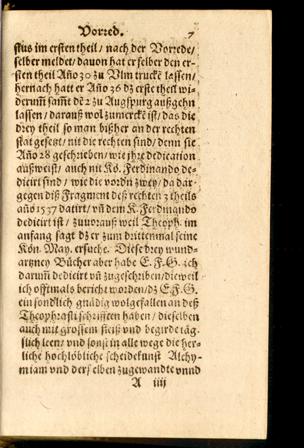 Vorred. 7
stus im ersten theil / nach der Vorrede /
selber meldet / dauon hat er selber den er-
sten theil Año 30 zu Vlm truckē lassen /
hernach hatt er Año 36 dz erste theil wi-
derum̃ sam̃t dē 2 zu Augspurg außgehn
lassen / darauß wol zumerckē ist / das die
drey theil so man bißher an der rechten
stat gesetzt / nit die rechten sind / denn sie
Año 28 geschrieben / wie jhre dedication
außweist / auch nit Kö. Ferdinando de-
diciert sind / wie die vordn zwey / da dar-
gegen diß Fragment deß rechten 3 theils
año 1537 datirt / vñ dem K. Ferdinando
dedicirt ist / zuuorauß weil Theoph. im
anfang sagt dz er zum drittenmal seine
Kön. May. ersuche. Diese drey wund-
artzney Bücher aber habe E. F. G. ich
darum̃ dedicirt vñ zugeschriben / dieweil
ich offtmals bericht worden / dz E. F. G.
ein sondlich gnädig wolgefallen an deß
Theophrasti schrifften haben / dieselben
auch mit grossem fleiß vnd begirde täg-
lich lesen / vnd sonst in alle wege die her-
liche hochlöbliche scheidekunst Alchy-
miam vnd derselben zugewandte vnnd
A iiij